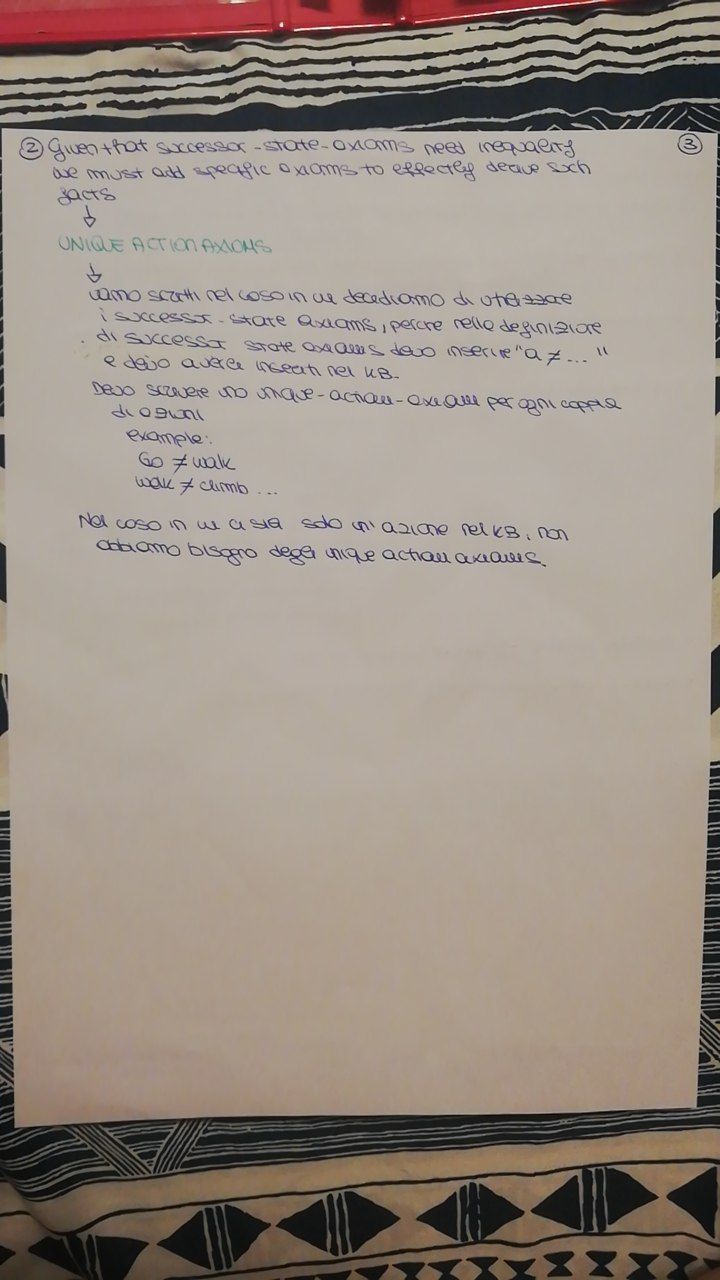 ② Given that successor-state-axioms need inequality ③
we must add specific axioms to effectly derive such
facts
↓
UNIQUE ACTION AXIOMS
↓
vanno scritti nel caso in cui decidiamo di utilizzare
i successor-state axioms, perché nella definizione
di successor state axioms devo inserire "a ≠ ... "
e devo averla inserita nel KB.
Devo scrivere uno unique-action-axiom per ogni coppia
di azioni
example:
Go ≠ walk
walk ≠ climb ...
Nel caso in cui ci sia solo un'azione nel KB, non
abbiamo bisogno degli unique action axioms.